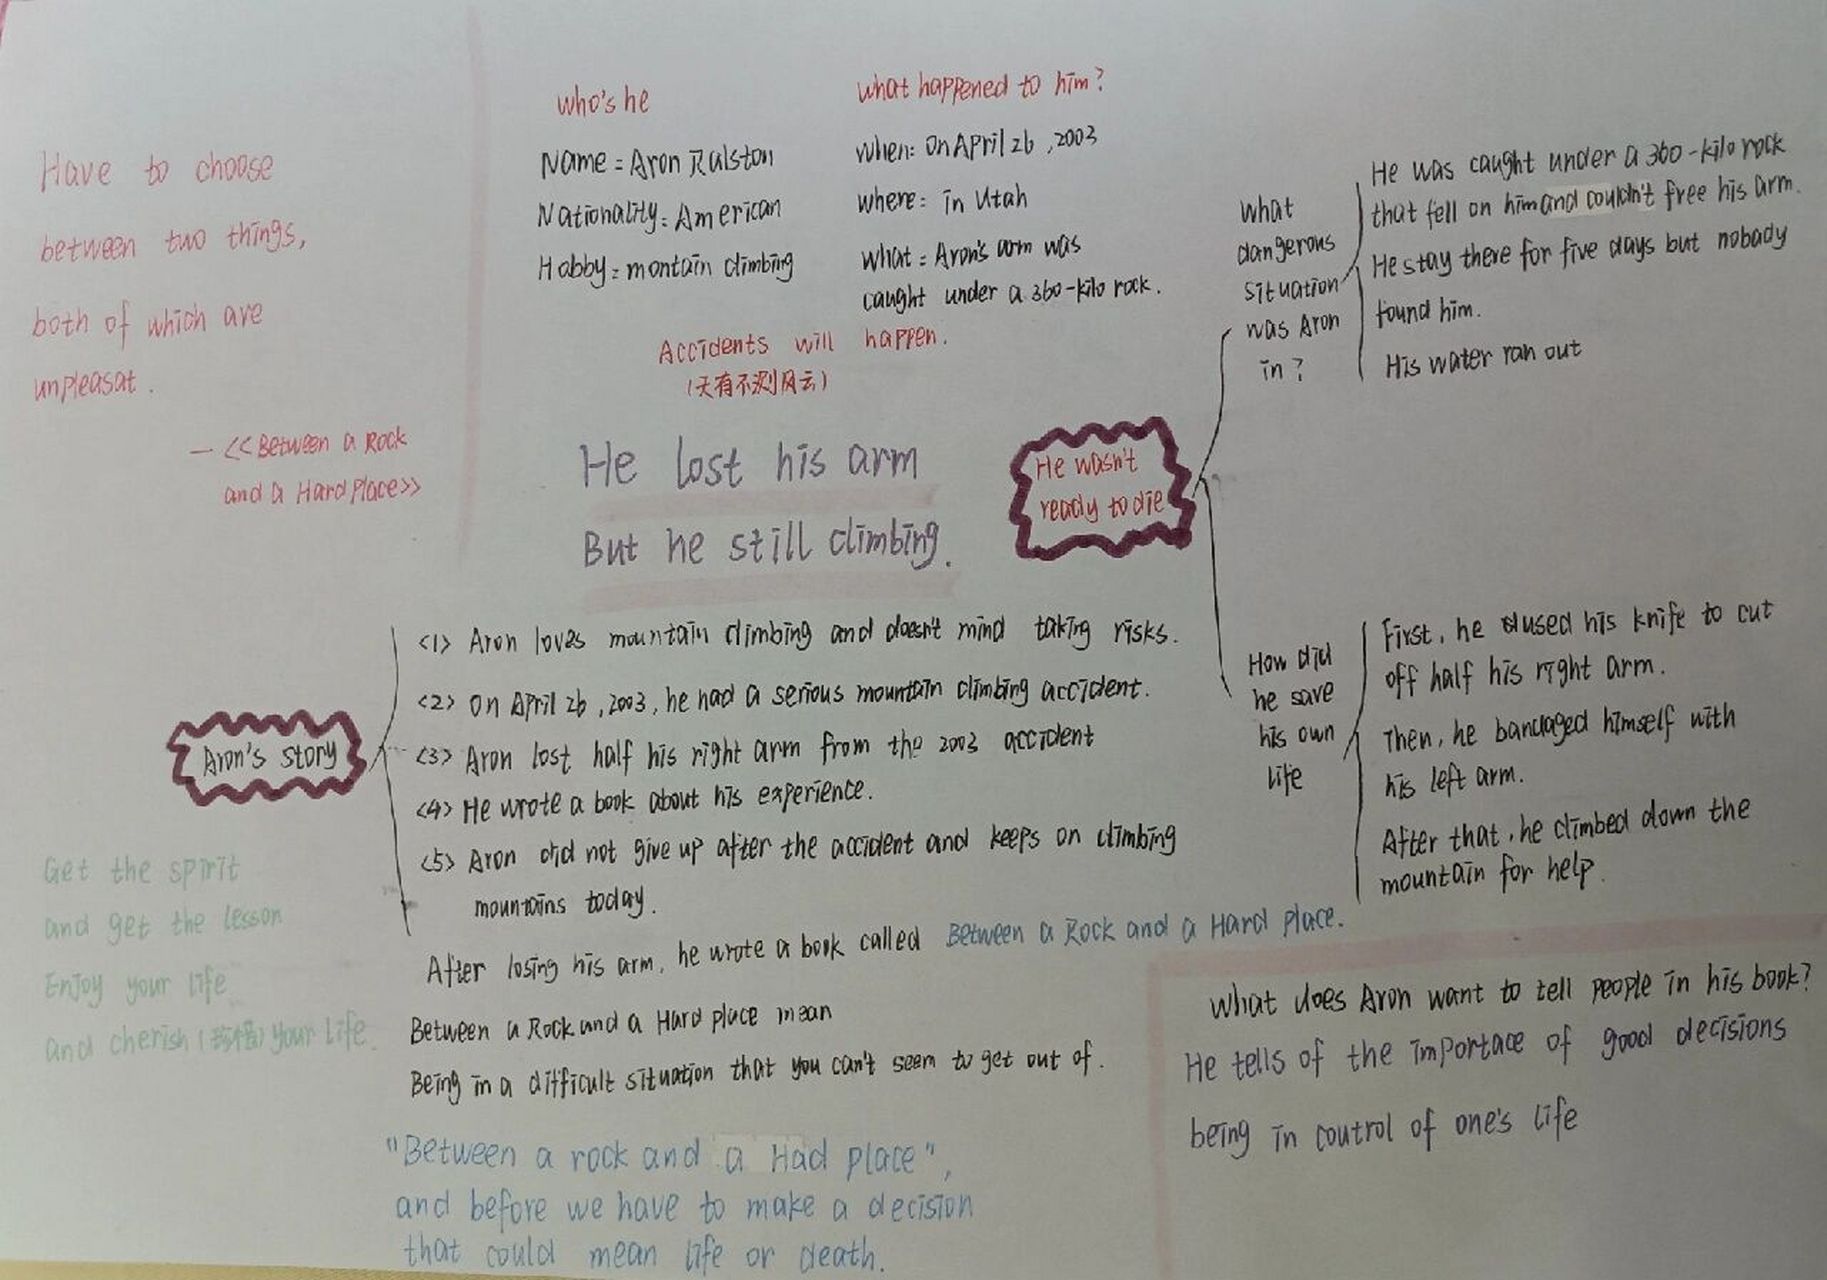 Have to choose
between two things,
both of which are
unpleasat.
— <<Between a Rock
and a Hard Place>>
who's he
Name = Aron Ralston
Nationality: American
Hobby = montain climbing
what happened to him?
when: On April 26, 2003
where: in Utah
what = Aron's arm was
caught under a 360-kilo rock.
Accidents will happen.
(天有不测风云)
He lost his arm
But he still climbing.
He wasn't
ready to die
what
dangerous
situation
was Aron
in?
He was caught under a 360-kilo rock
that fell on him and couldn't free his arm.
He stay there for five days but nobody
found him.
His water ran out
How did
he save
his own
life
First, he used his knife to cut
off half his right arm.
Then, he bandaged himself with
his left arm.
After that, he climbed down the
mountain for help.
Aron's story
<1> Aron loves mountain climbing and doesn't mind taking risks.
<2> On April 26, 2003, he had a serious mountain climbing accident.
<3> Aron lost half his right arm from the 2003 accident
<4> He wrote a book about his experience.
<5> Aron did not give up after the accident and keeps on climbing
mountains today.
Get the spirit
and get the lesson
Enjoy your life
and cherish (珍惜) your life.
After losing his arm, he wrote a book called Between a Rock and a Hard Place.
Between a Rock and a Hard place mean
Being in a difficult situation that you can't seem to get out of.
"Between a rock and a Had place",
and before we have to make a decision
that could mean life or death.
What does Aron want to tell people in his book?
He tells of the importace of good decisions
being in control of one's life